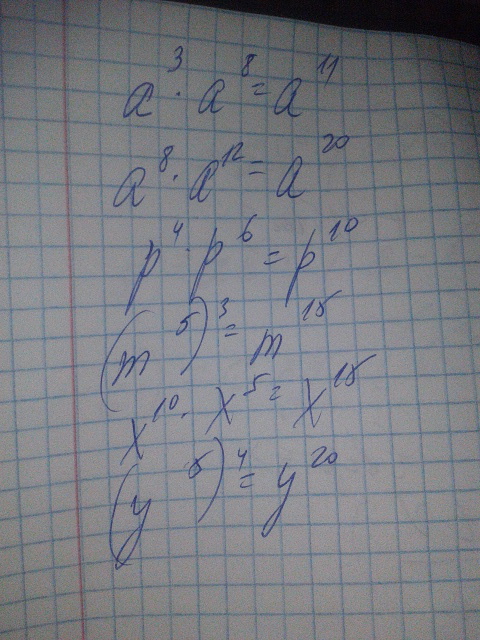 a³ · a⁸ = a¹¹
a⁸ · a¹² = a²⁰
p⁴ · p⁶ = p¹⁰
(m⁵)³ = m¹⁵
x¹⁰ · x⁵ = x¹⁵
(y⁵)⁴ = y²⁰